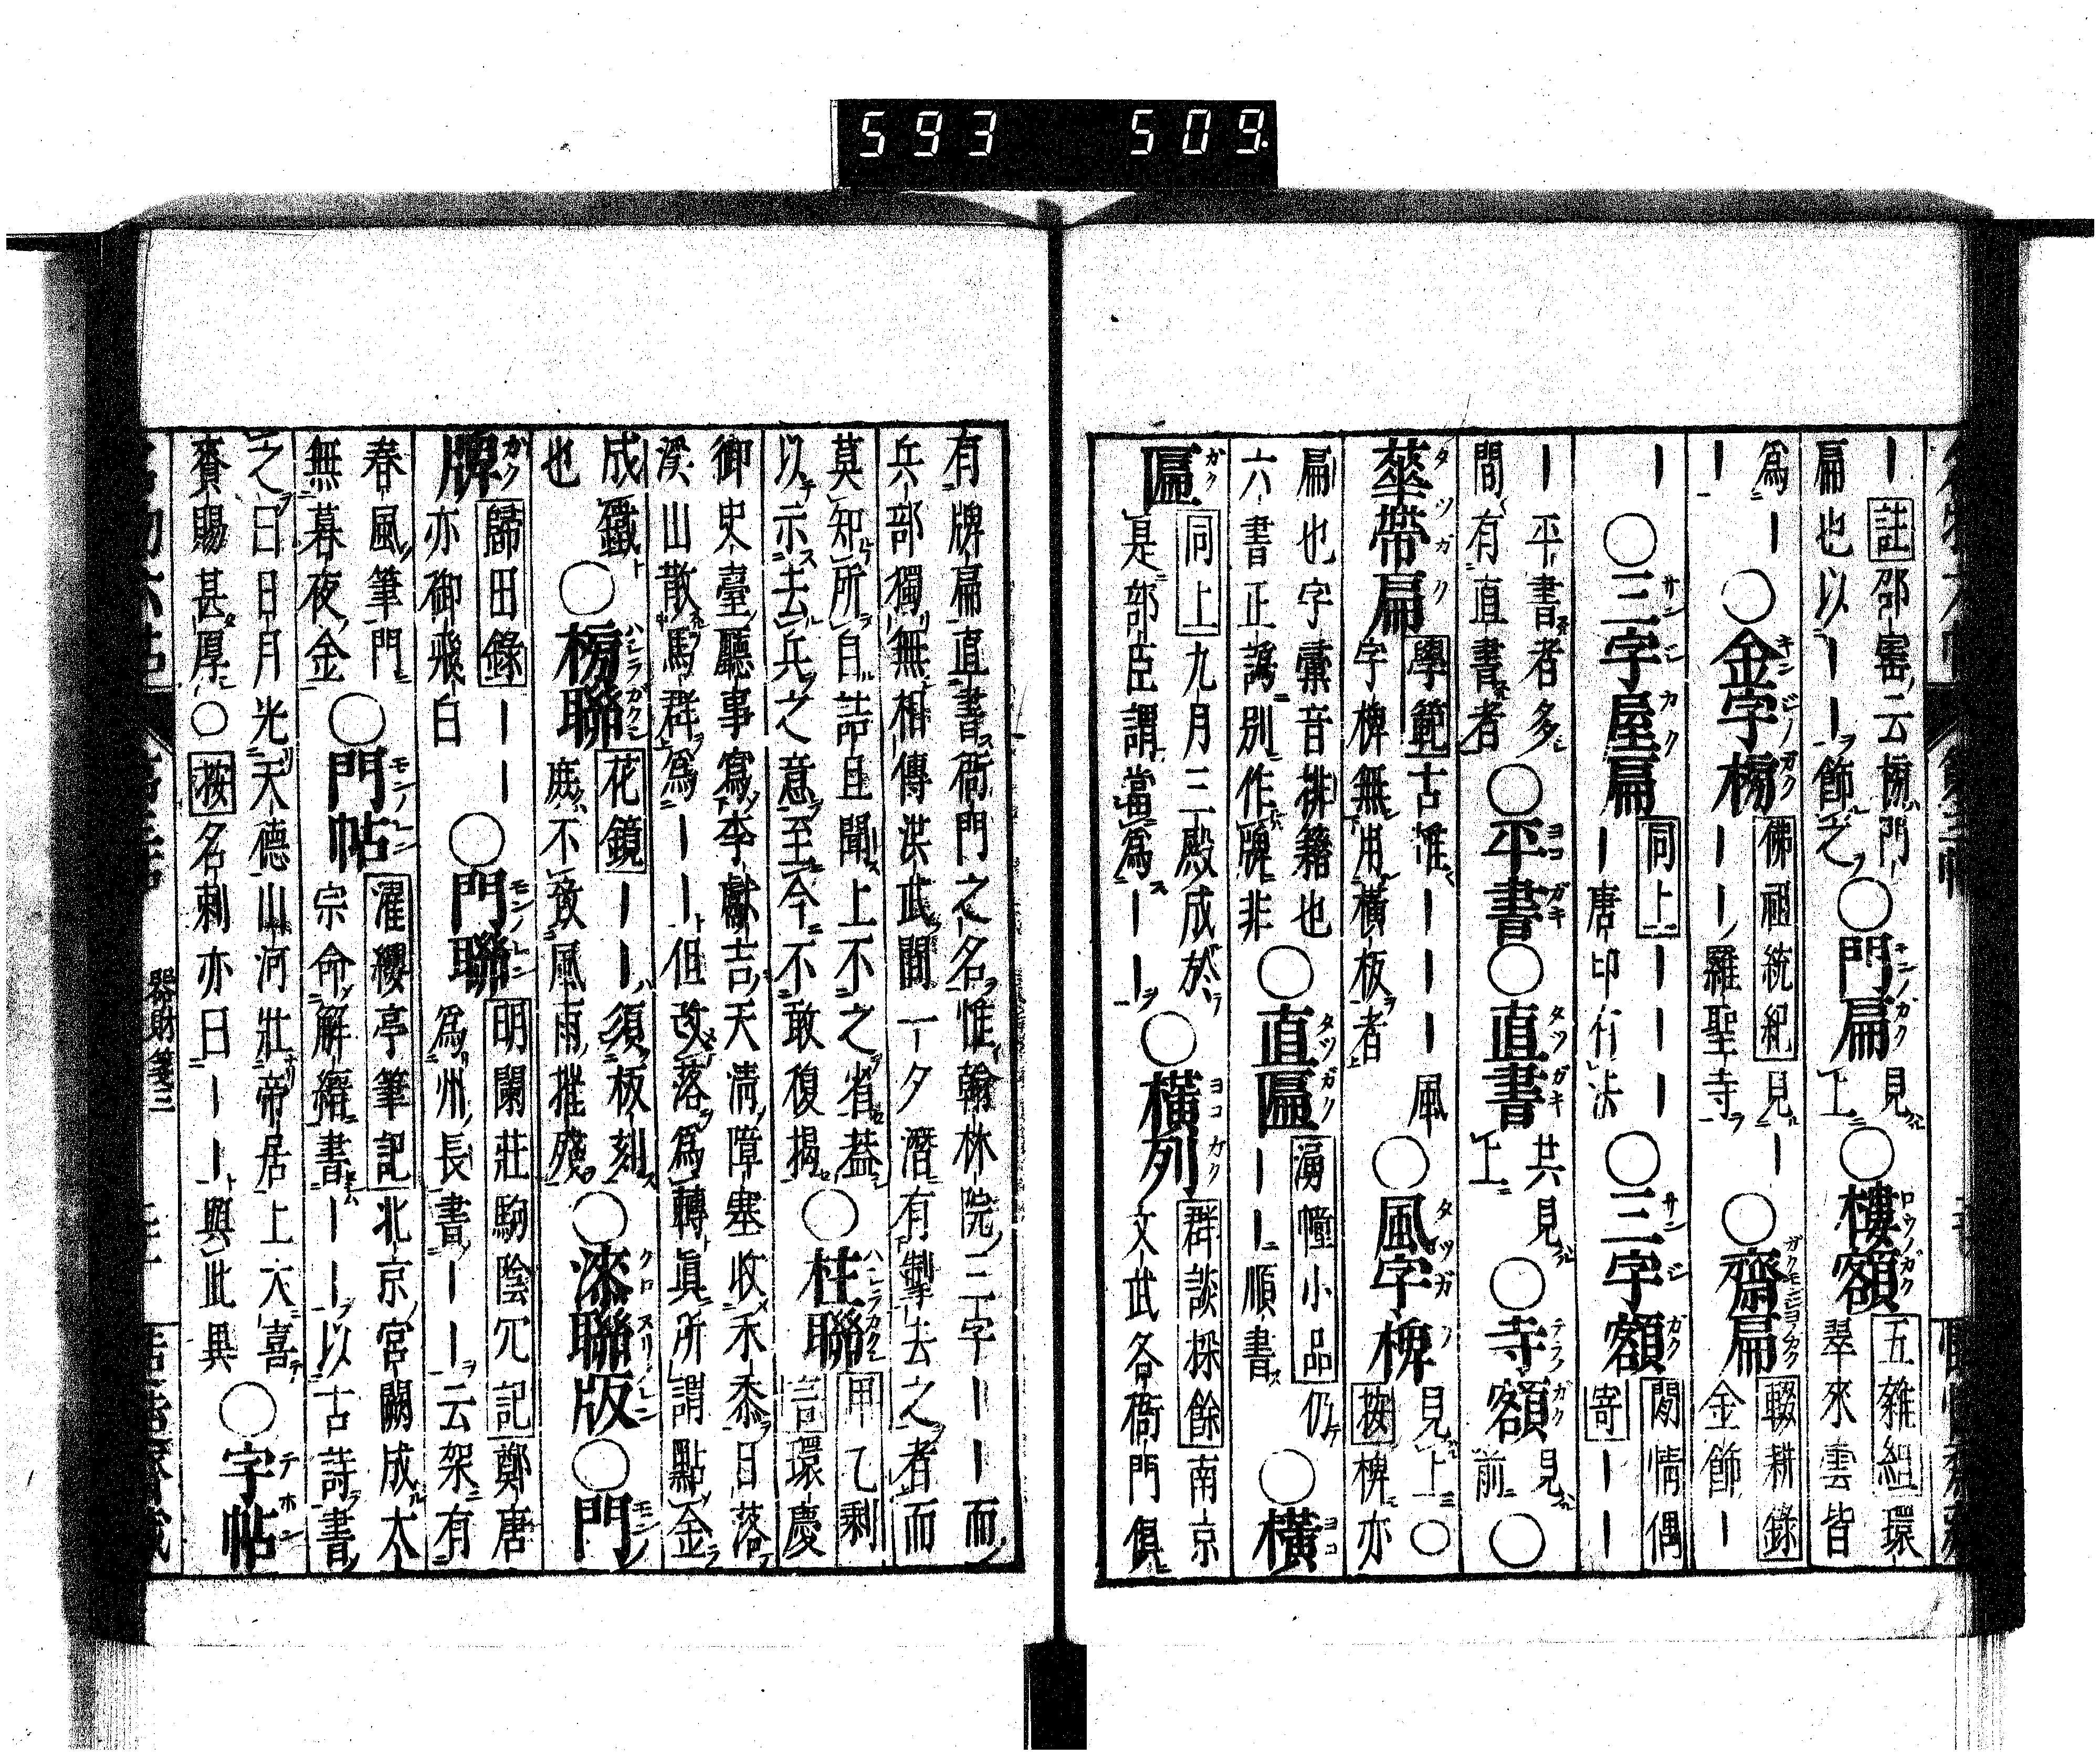 593 509.
｜註邵寳云榜門
扁也以｜｜飾之○門扁見上○樓額五雜組環翠來雲皆
爲｜｜○金字榜佛祖統紀｜｜｜見｜羅聖寺○齋扁輟耕錄金飾｜
｜○三字屋扁同上｜｜｜｜唐印行法○三字額閒情偶寄｜｜
｜平書者多間有直書者○平書○直書共見上○寺額見前○
華帶扁學範古惟｜｜｜風字榫無用橫板者○風字榫見上○按榫亦
扁也字彙音排籍也六書正譌別作牌非○直匾湧幢小品｜｜仍順書○橫
匾同上九月三殿成於是部臣謂當爲｜｜○橫列群談採餘南京文武各衙門俱
有牌扁直書衙門之名惟翰林院三字｜｜而
兵部獨無相傳洪武間一夕潛有掣去之者而
莫知所自詰旦聞上不之省葢以示去兵之意至今不敢復揭○柱聯甲乙剩言環慶
御史臺廳事寫李獻吉天淸障塞收禾黍日落溪山散馬群爲｜｜但改落爲轉眞所謂點金
成鐵也○榜聯花鏡｜｜須板刻庭不致風雨摧殘○漆聯版○門
牌歸田錄｜｜亦御飛白○門聯明閑莊駒陰冗記鄭唐爲州長書｜｜云架有
春風筆門無暮夜金○門帖濯纓亭筆記北京宮闕成太宗命解縉書｜｜以古詩書
之曰日月光天德山河壯帝居上大喜賚賜甚厚○按名刺亦曰｜｜與此異○字帖
器財筆三